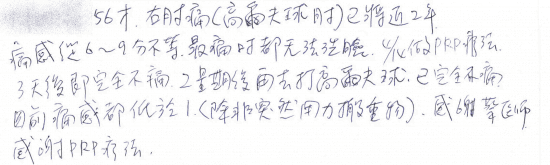 56才. 右肘痛(高爾夫球肘)已將近2年
痛感從6~9分不等. 最痛時都无法洗臉. 4/6做PRP療法.
3天後即完全不痛. 2星期後再去打高爾夫球. 已完全不痛
目前痛感都低於1.(除非突然用力搬重物). 感謝醫師
感謝PRP療法.